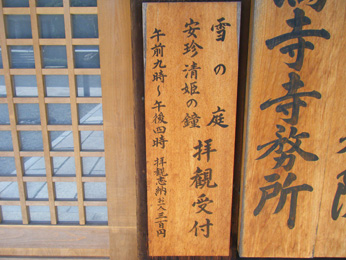 雪の庭
安珍清姫の鐘 拝観受付
午前九時〜午後四時 拝観志納お一人三百円
寺寺務所